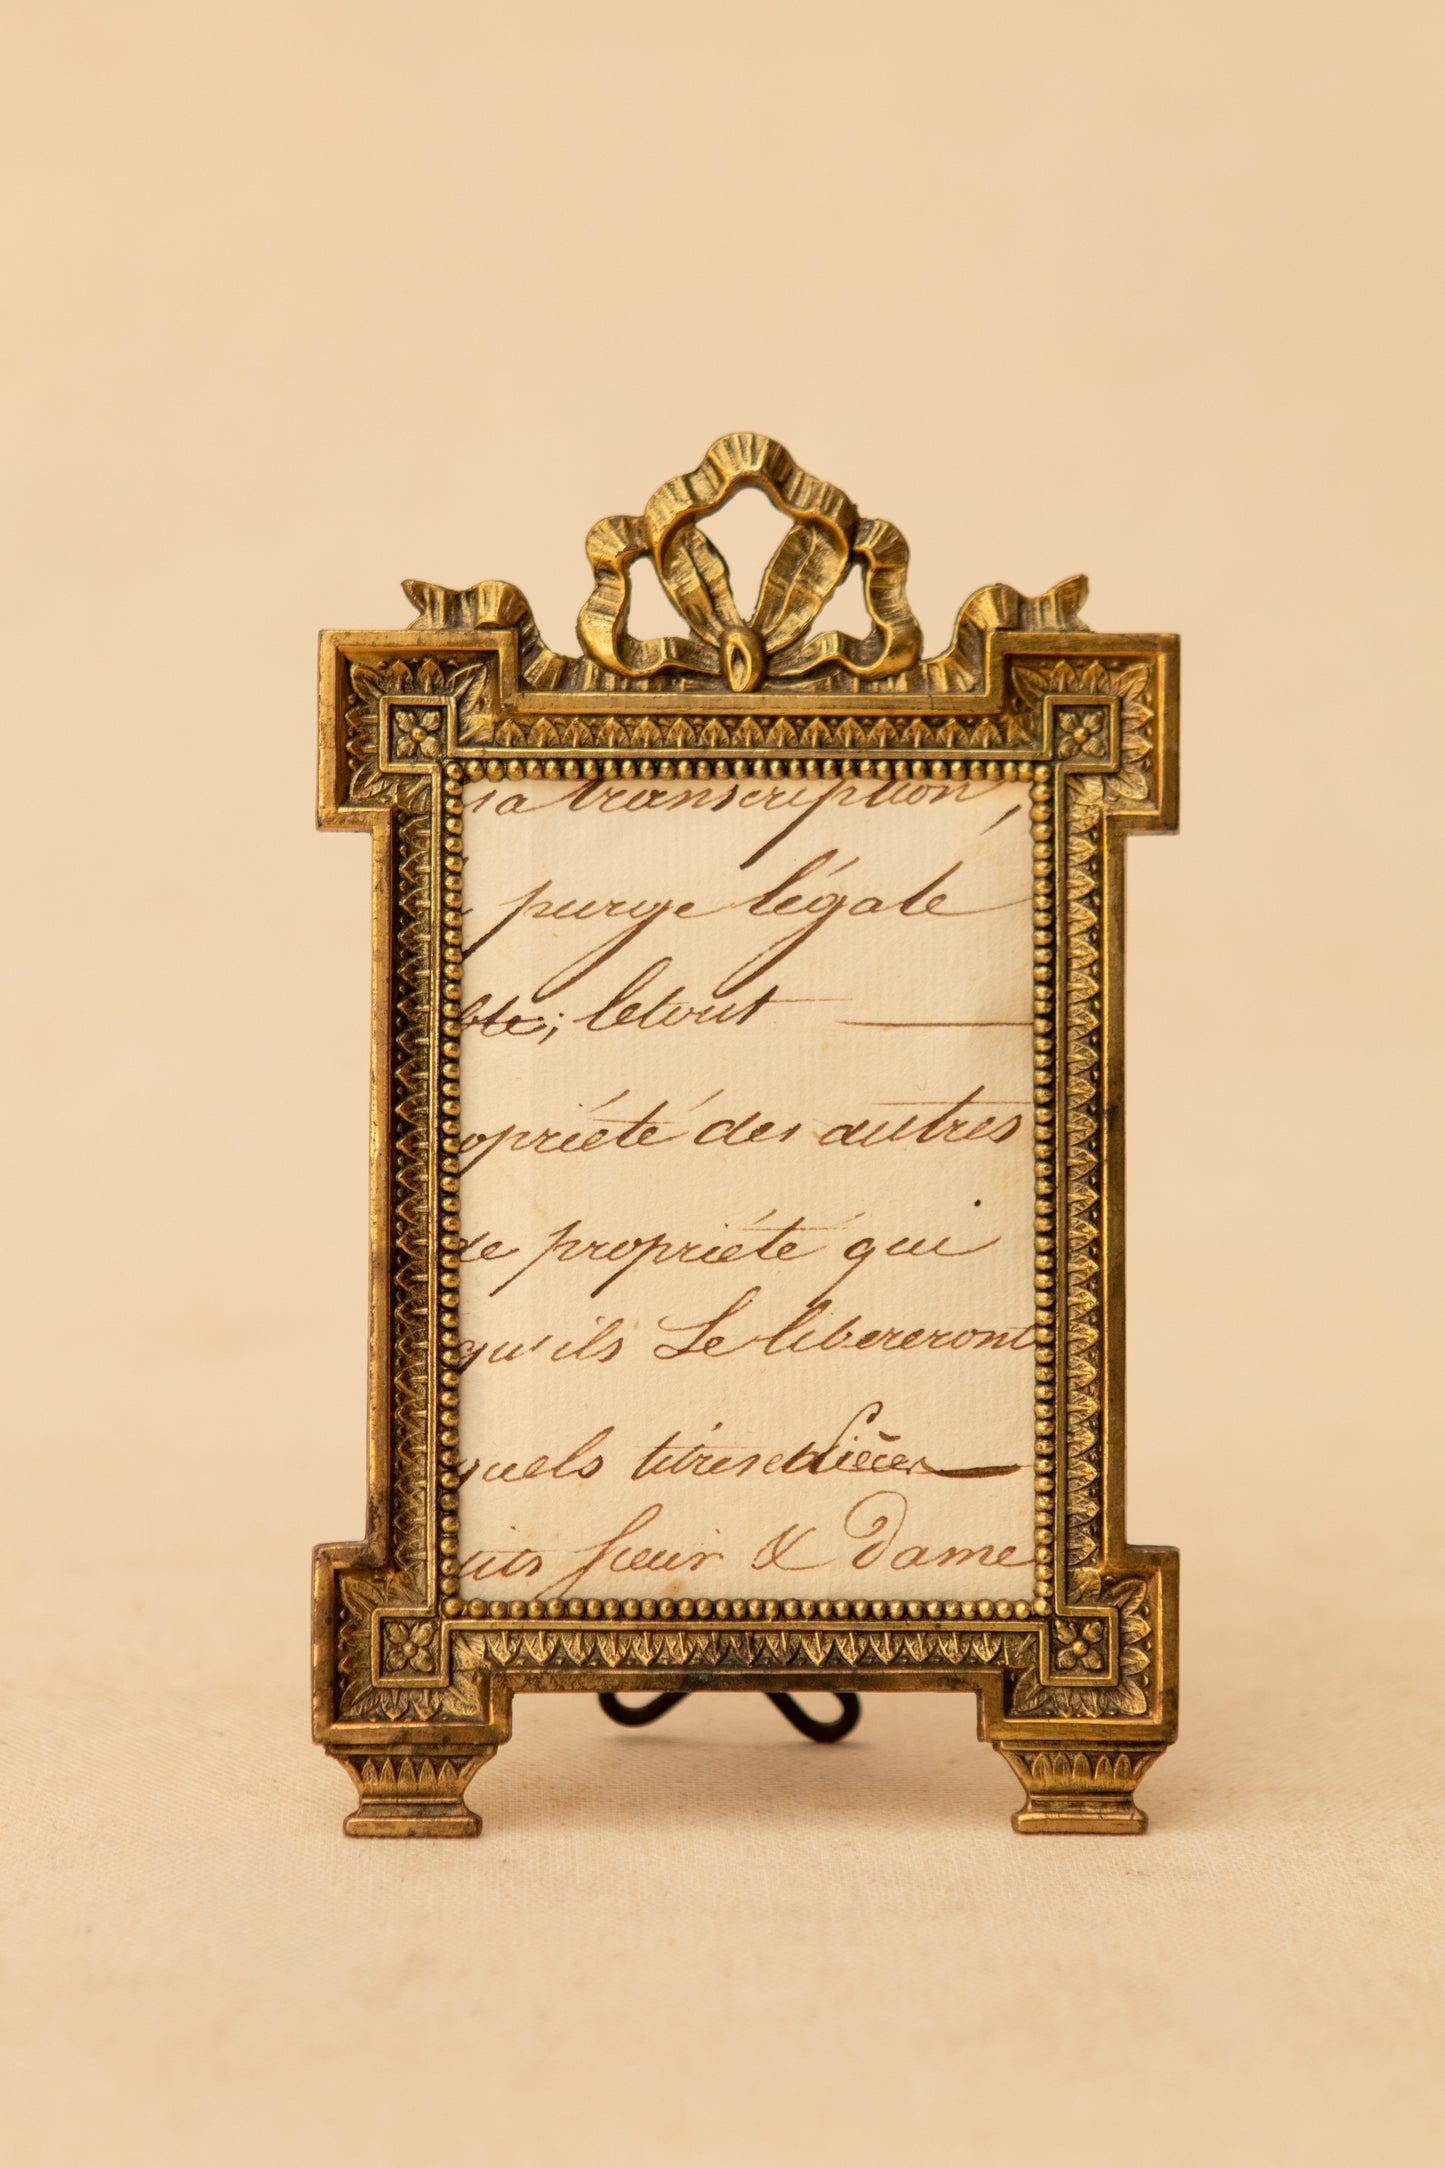 sa transcription,
purge légale
ble; letout
opriété des autres
de propriété qui
qu'ils Se libereront
quels titres
Sieur & Dame